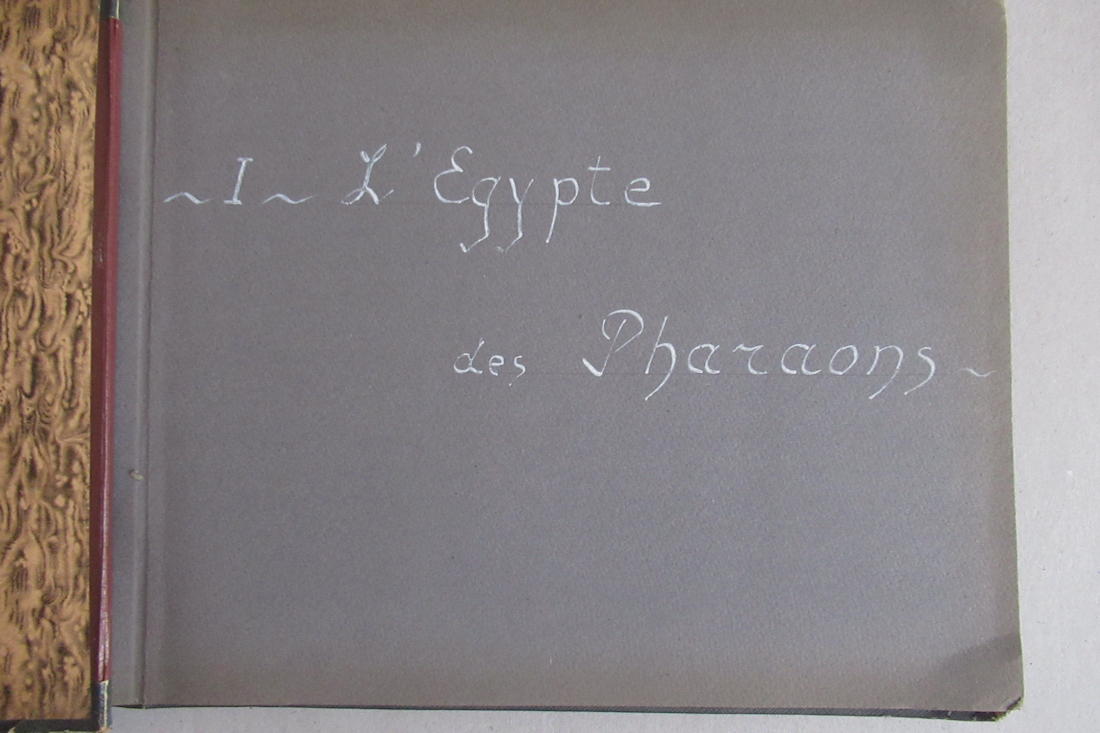 ~ I ~ L'Egypte
des Pharaons ~